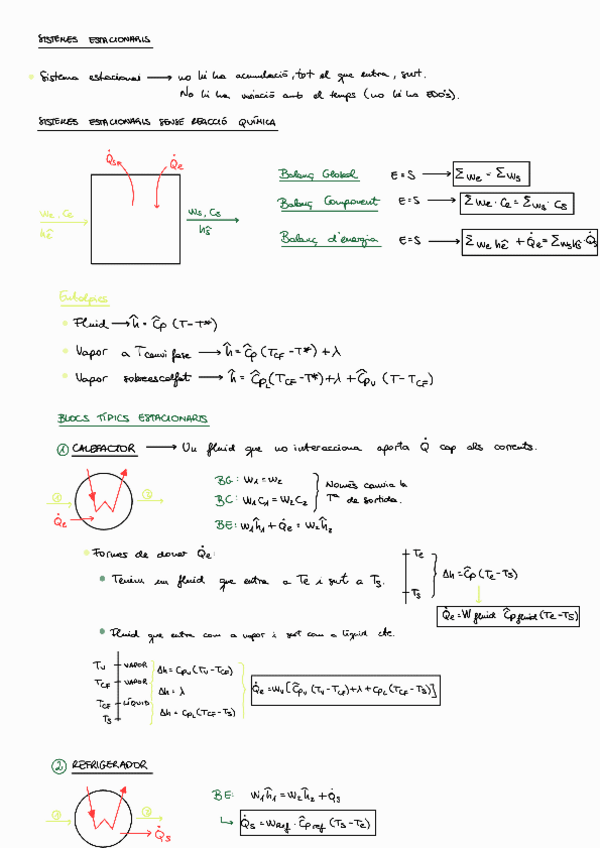 SISTEMES ESTACIONARIS
• Sistema estacional → no hi ha acumulació, tot el que entra, surt.
No hi ha variació amb el temps (no hi ha EDO's).
SISTEMES ESTACIONARIS SENSE REACCIÓ QUÍMICA
Q̇s Q̇e
we, ce
ĥe
ws, cs
ĥs
Balanç Global E=S → Σwe = Σws
Balanç Component E=S → Σwe·ce = Σws·cs
Balanç d'energia E=S → Σwe ĥe + Q̇e = Σws ĥs · Q̇s
Entalpies
• Fluid → ĥ = ĉp (T-T*)
• Vapor a Tcanvi fase → ĥ = ĉp (TCF - T*) + λ
• Vapor sobreescalfat → ĥ = ĉpL (TCF - T*) + λ + ĉpv (T - TCF)
BLOCS TÍPICS ESTACIONARIS
① CALEFACTOR → Un fluid que no interacciona aporta Q̇ cap als corrents.
① ②
Q̇e
BG: w1 = w2
BC: w1c1 = w2c2
BE: w1ĥ1 + Q̇e = w2ĥ2
Només canvia la
Tª de sortida.
• Formes de donar Q̇e:
• Tenim un fluid que entra a Te i surt a Ts.
Te
Ts
Δh = ĉp (Te - Ts)
Q̇e = w fluid ĉp fluid (Te - Ts)
• Fluid que entra com a vapor i surt com a líquid etc.
Tv VAPOR Δh = cpv (Tv - TCF)
TCF VAPOR Δh = λ
TCF LÍQUID Δh = cpL (TCF - Ts)
Ts
Q̇e = wv [ĉpv (Tv - TCF) + λ + cpL (TCF - Ts)]
② REFRIGERADOR
① ②
Q̇s
BE: w1ĥ1 = w2ĥ2 + Q̇s
↳ Q̇s = wref · ĉp ref (Ts - Te)